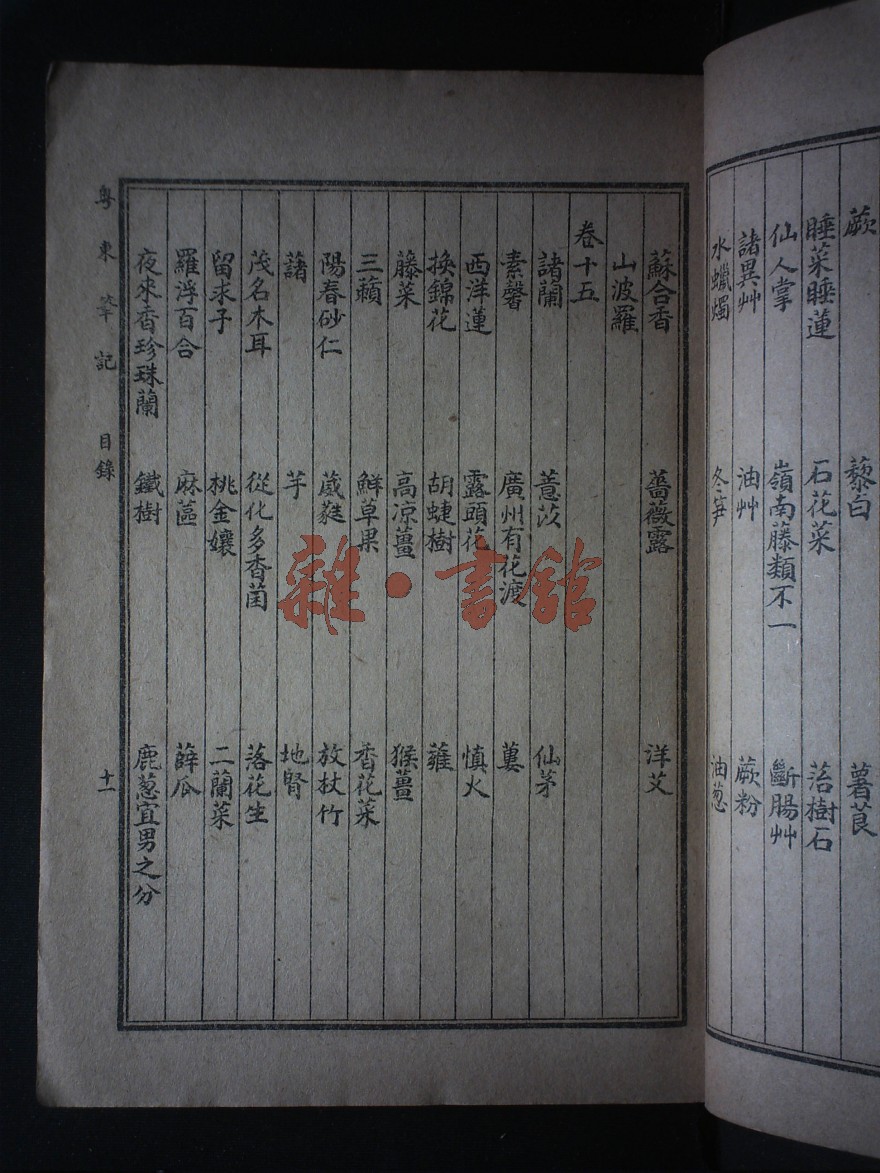 蕨 藜白 薯莨
睡菜睡蓮 石花菜 活樹石
仙人掌 嶺南藤類不一 斷腸艸
諸異艸 油艸 蕨粉
水蠟燭 冬笋 油葱
蘇合香 薔薇露 洋艾
山波羅
卷十五
諸蘭 薏苡 仙茅
素馨 廣州有花渡 蔞
西洋蓮 露頭花 慎火
換錦花 胡蜨樹 蕹
藤菜 高涼薑 猴薑
三藾 鮮草果 香花菜
陽春砂仁 葳蕤 放杖竹
藷 芋 地腎
茂名木耳 從化多香菌 落花生
留求子 桃金孃 二蘭菜
羅浮百合 麻蓲 薛瓜
夜來香珍珠蘭 鐵樹 鹿葱宜男之分
粤東筆記 目錄 十一
雜·書館